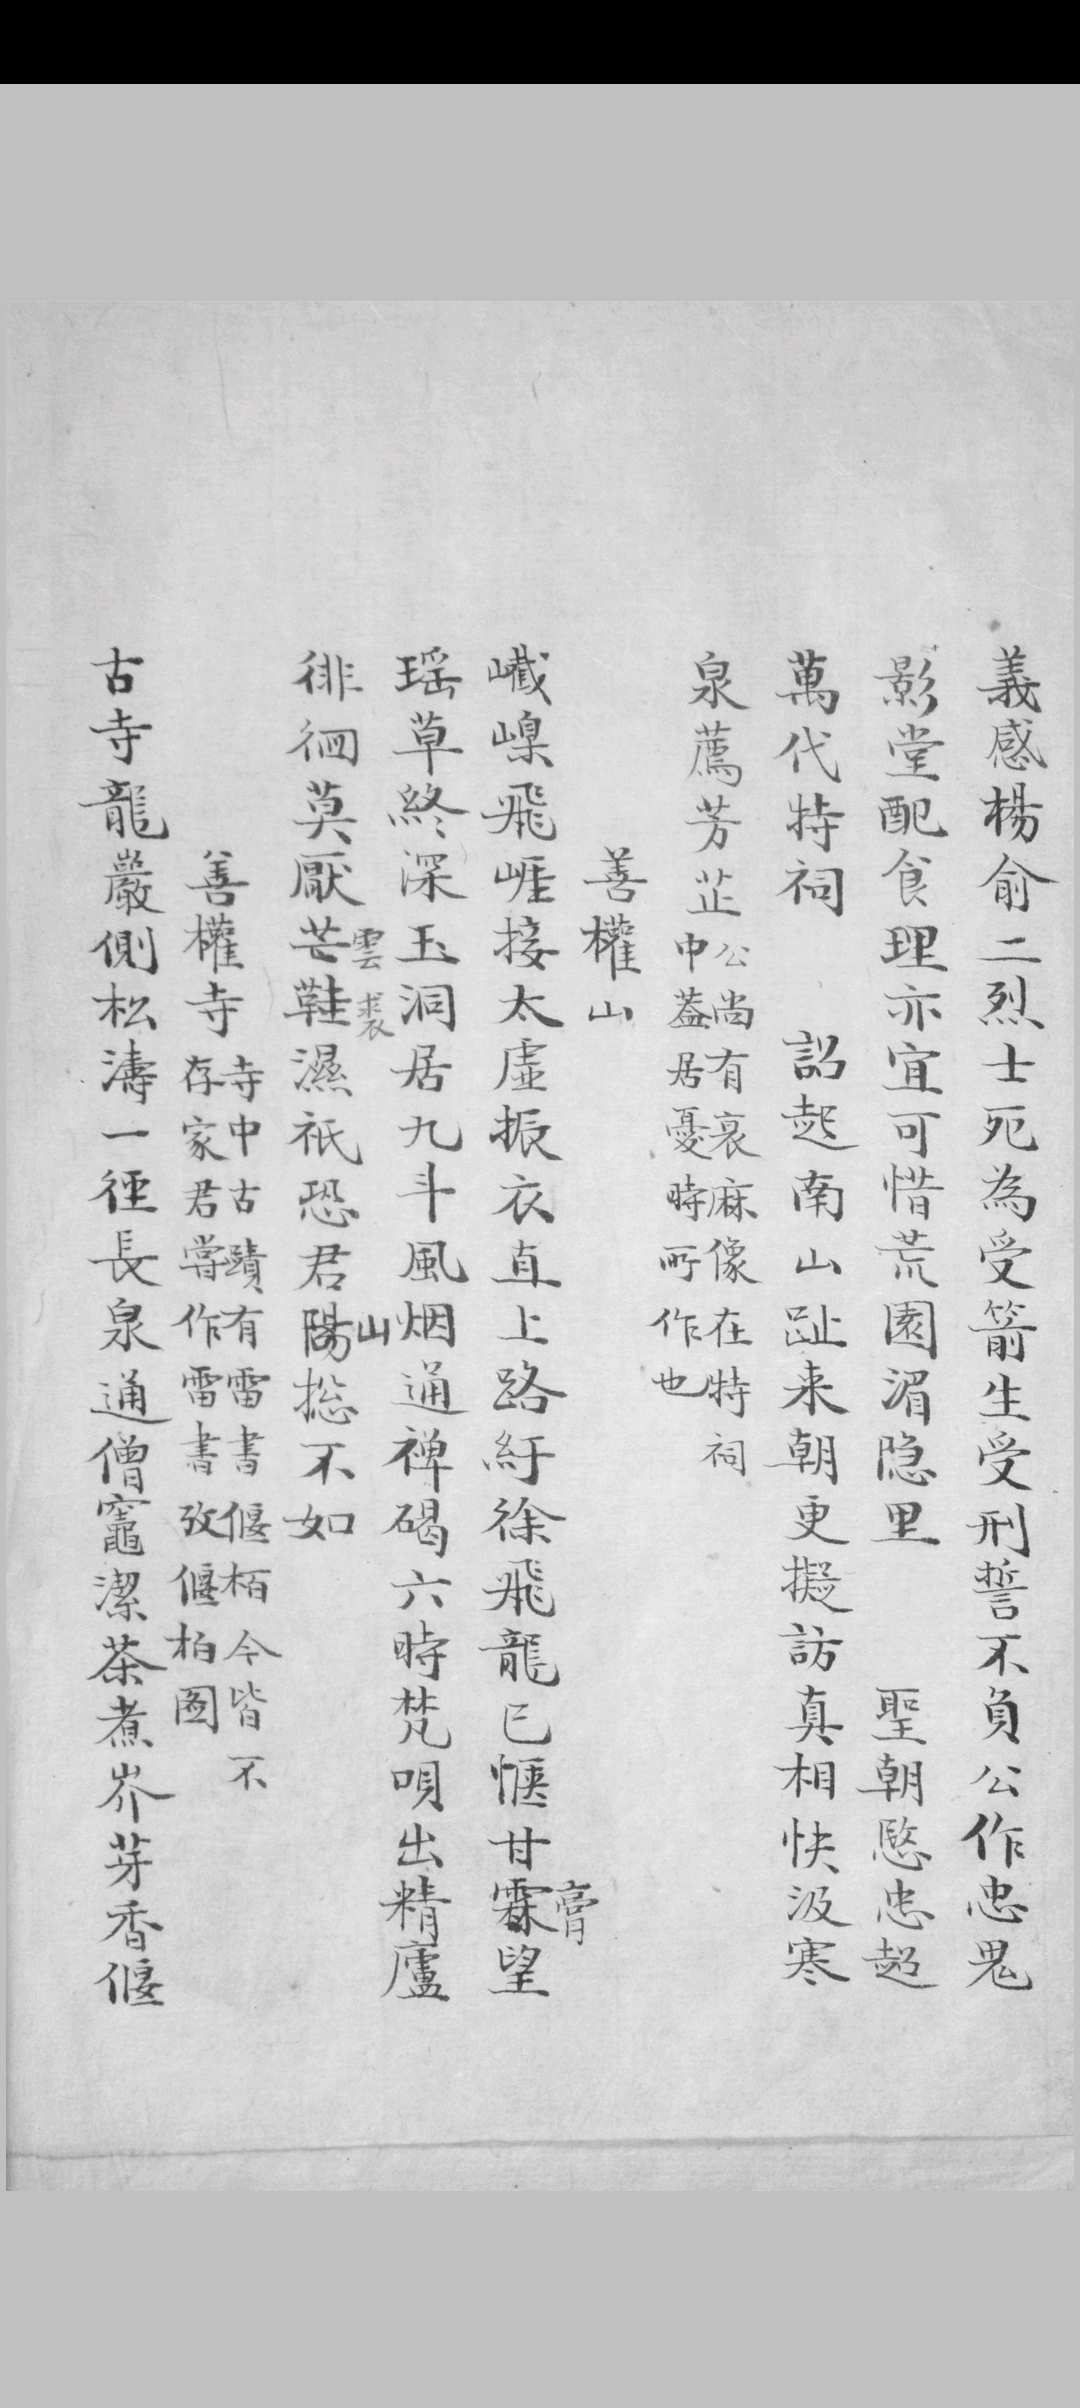 義感楊俞二烈士死為受箭生受刑誓不負公作忠鬼
影堂配食理亦宜可惜荒園湄隐里　聖朝愍忠超
萬代特祠　詔起南山趾来朝更擬訪真相快汲寒
泉薦芳芷公尚有衰麻像在特祠
中葢居憂時所作也
善權山
巇嵲飛崕接太虛振衣直上路紆徐飛龍已愜甘霖望
膏
瑶草終深玉洞居九斗風烟通禅碣六時梵唄出精廬
山
徘徊莫厭芒鞋濕祇恐君陽揔不如
雲裘
善權寺寺中古蹟有雷書偃栢今皆不
存家君嘗作雷書攷偃柏图
古寺龍巖側松濤一徑長泉通僧竈潔茶煮岕芽香偃